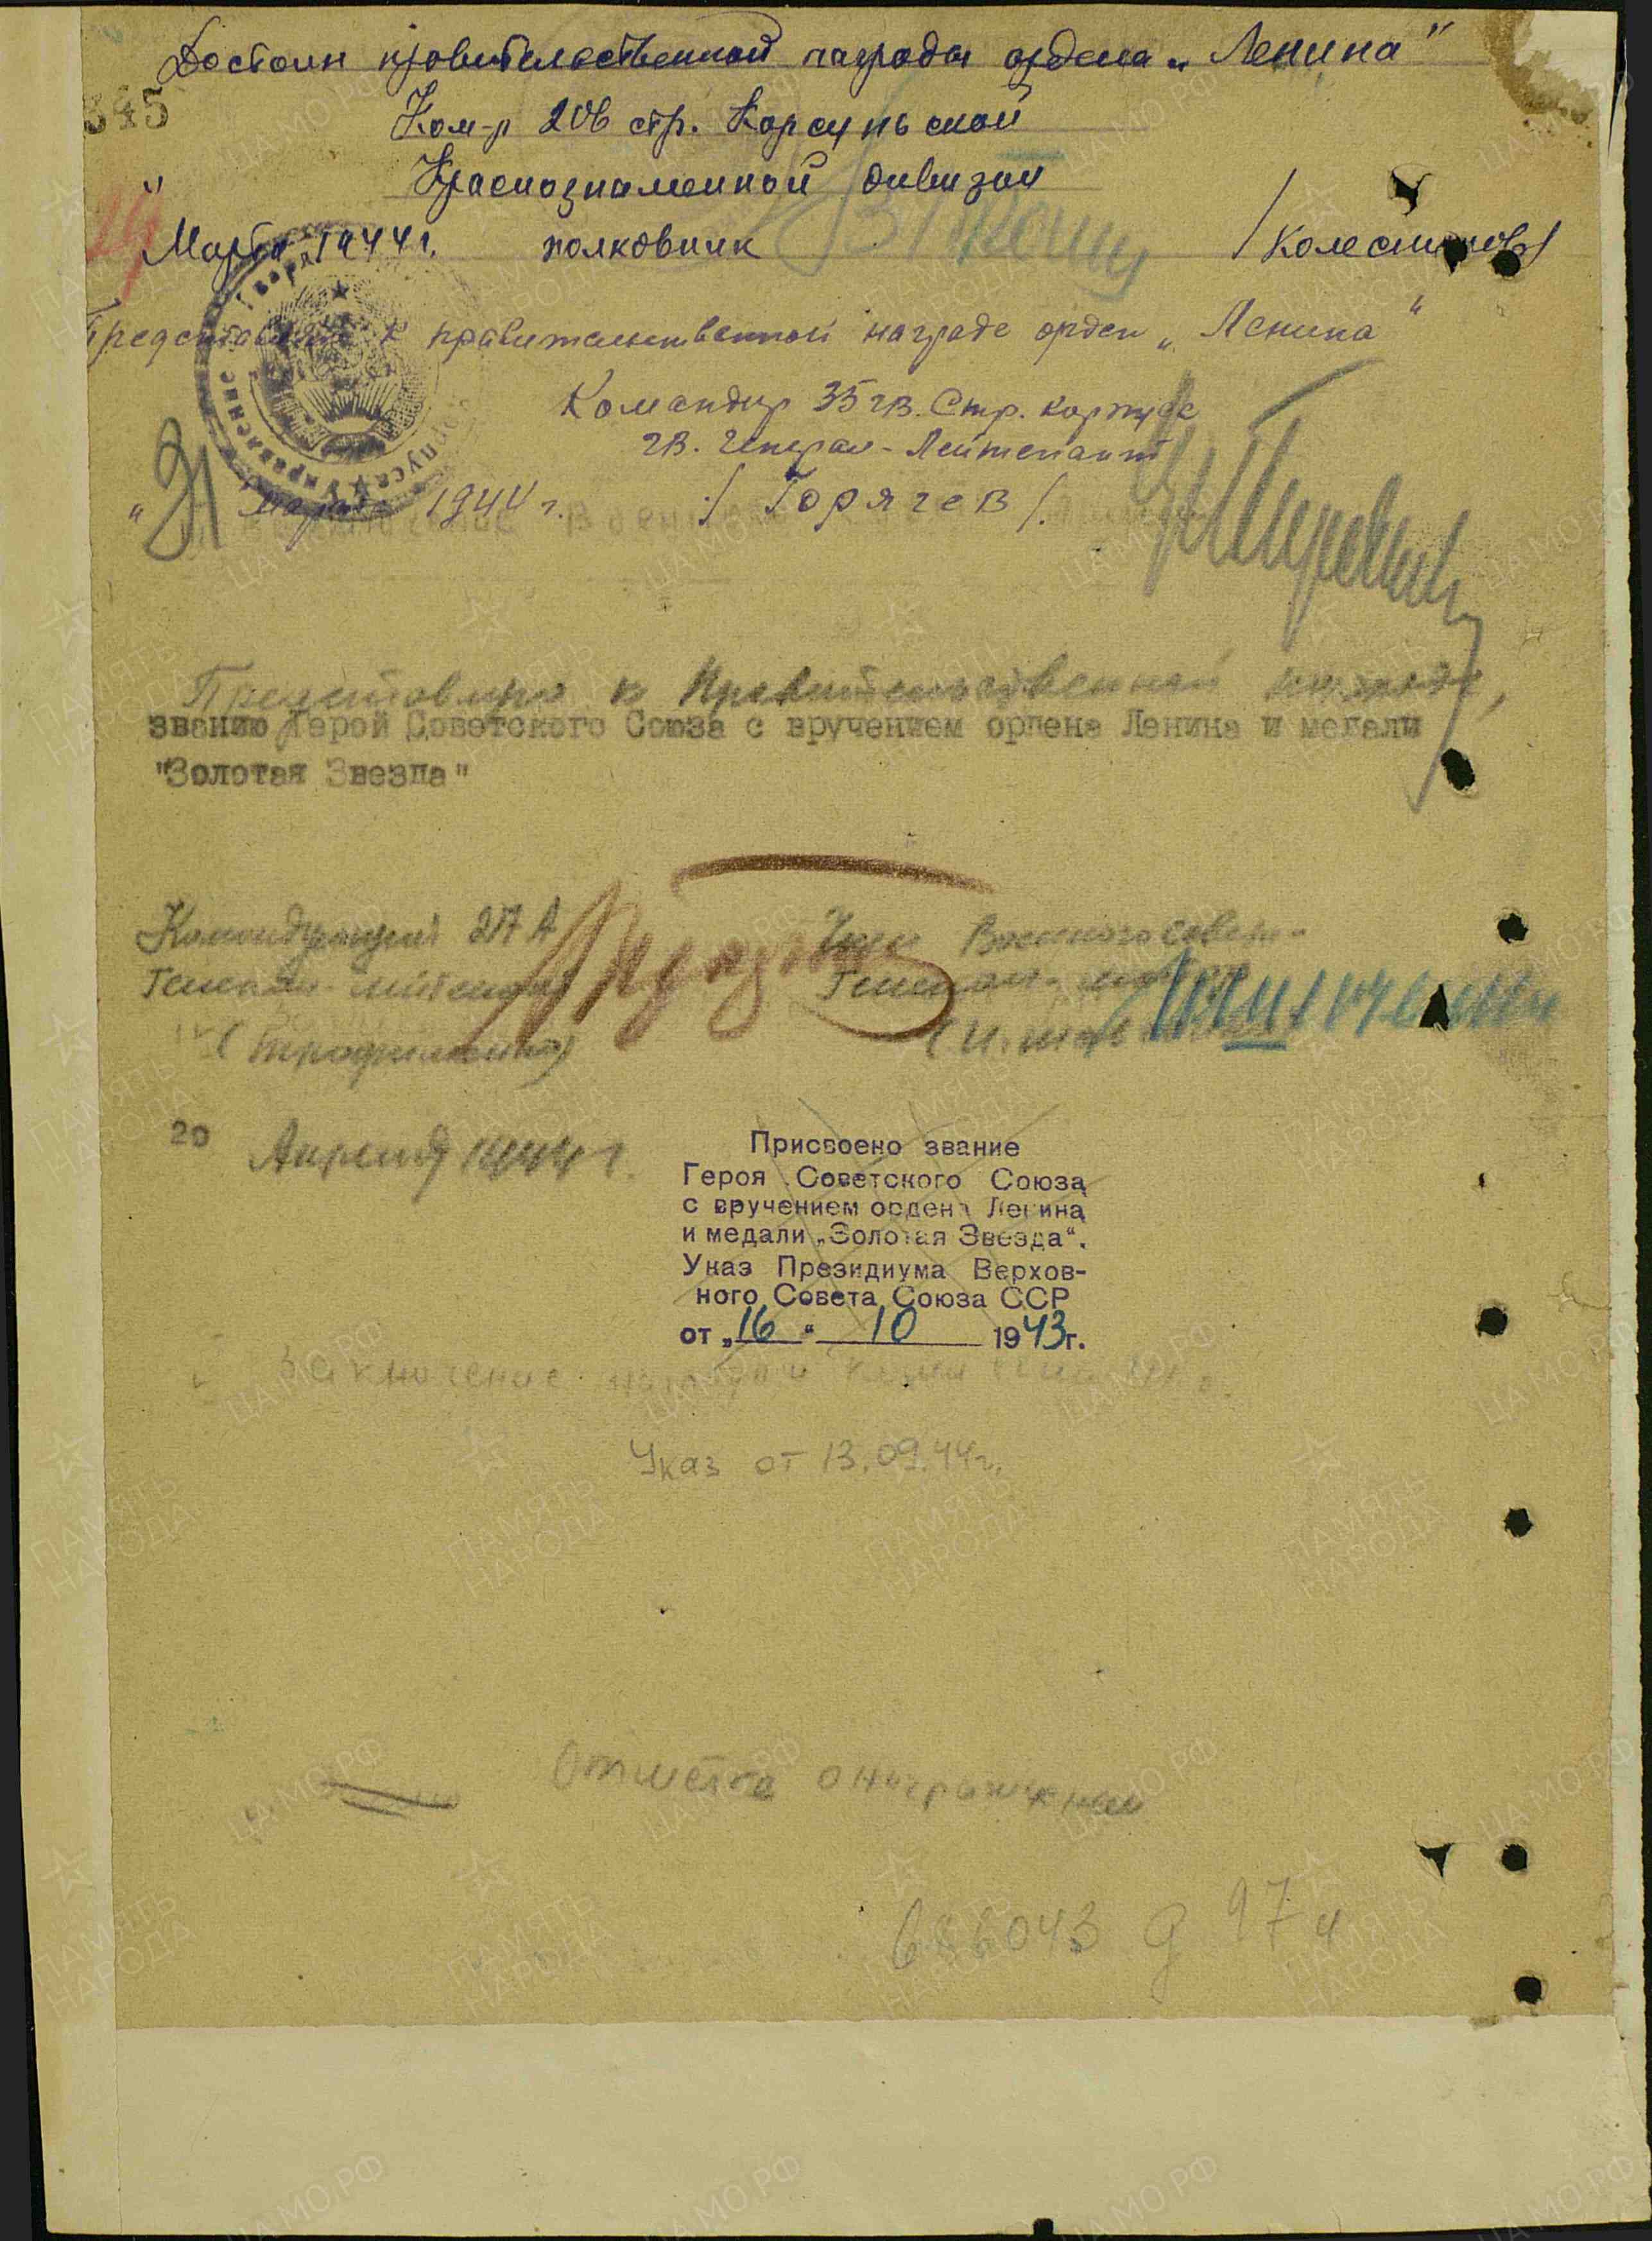 Достоин правительственной награды ордена „Ленина"
345
Ком-р 206 стр. Корсуньской
Краснознаменной дивизии
"19" Марта 1944 г. полковник /Колесников/
Представляю к правительственной награде орден „Ленина"
Командир 35 гв. Стр. корпуса
гв. Генерал-Лейтенант
"31" марта 1944 г. /Горячев/.
Представляю к Правительственной награде,
званию Герой Советского Союза с вручением ордена Ленина и медали
"Золотая Звезда"
Командующий 27 А Член Военного совета
Генерал-лейтенант Генерал-майор
(Трофименко)
20 Апреля 1944 г.
Присвоено звание
Героя Советского Союза
с вручением ордена Ленина
и медали „Золотая Звезда".
Указ Президиума Верхов-
ного Совета Союза ССР
от „16" 10 1943г.
Заключение наградной комиссии НКО.
Указ от 13.09.44г.
Отметка о награждении